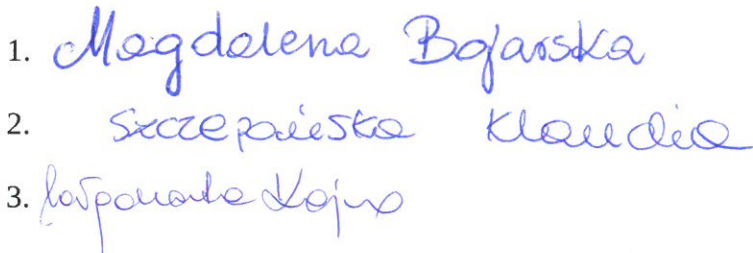 1. Magdalena Bojarska
2. Szczepańska Klaudia
3.